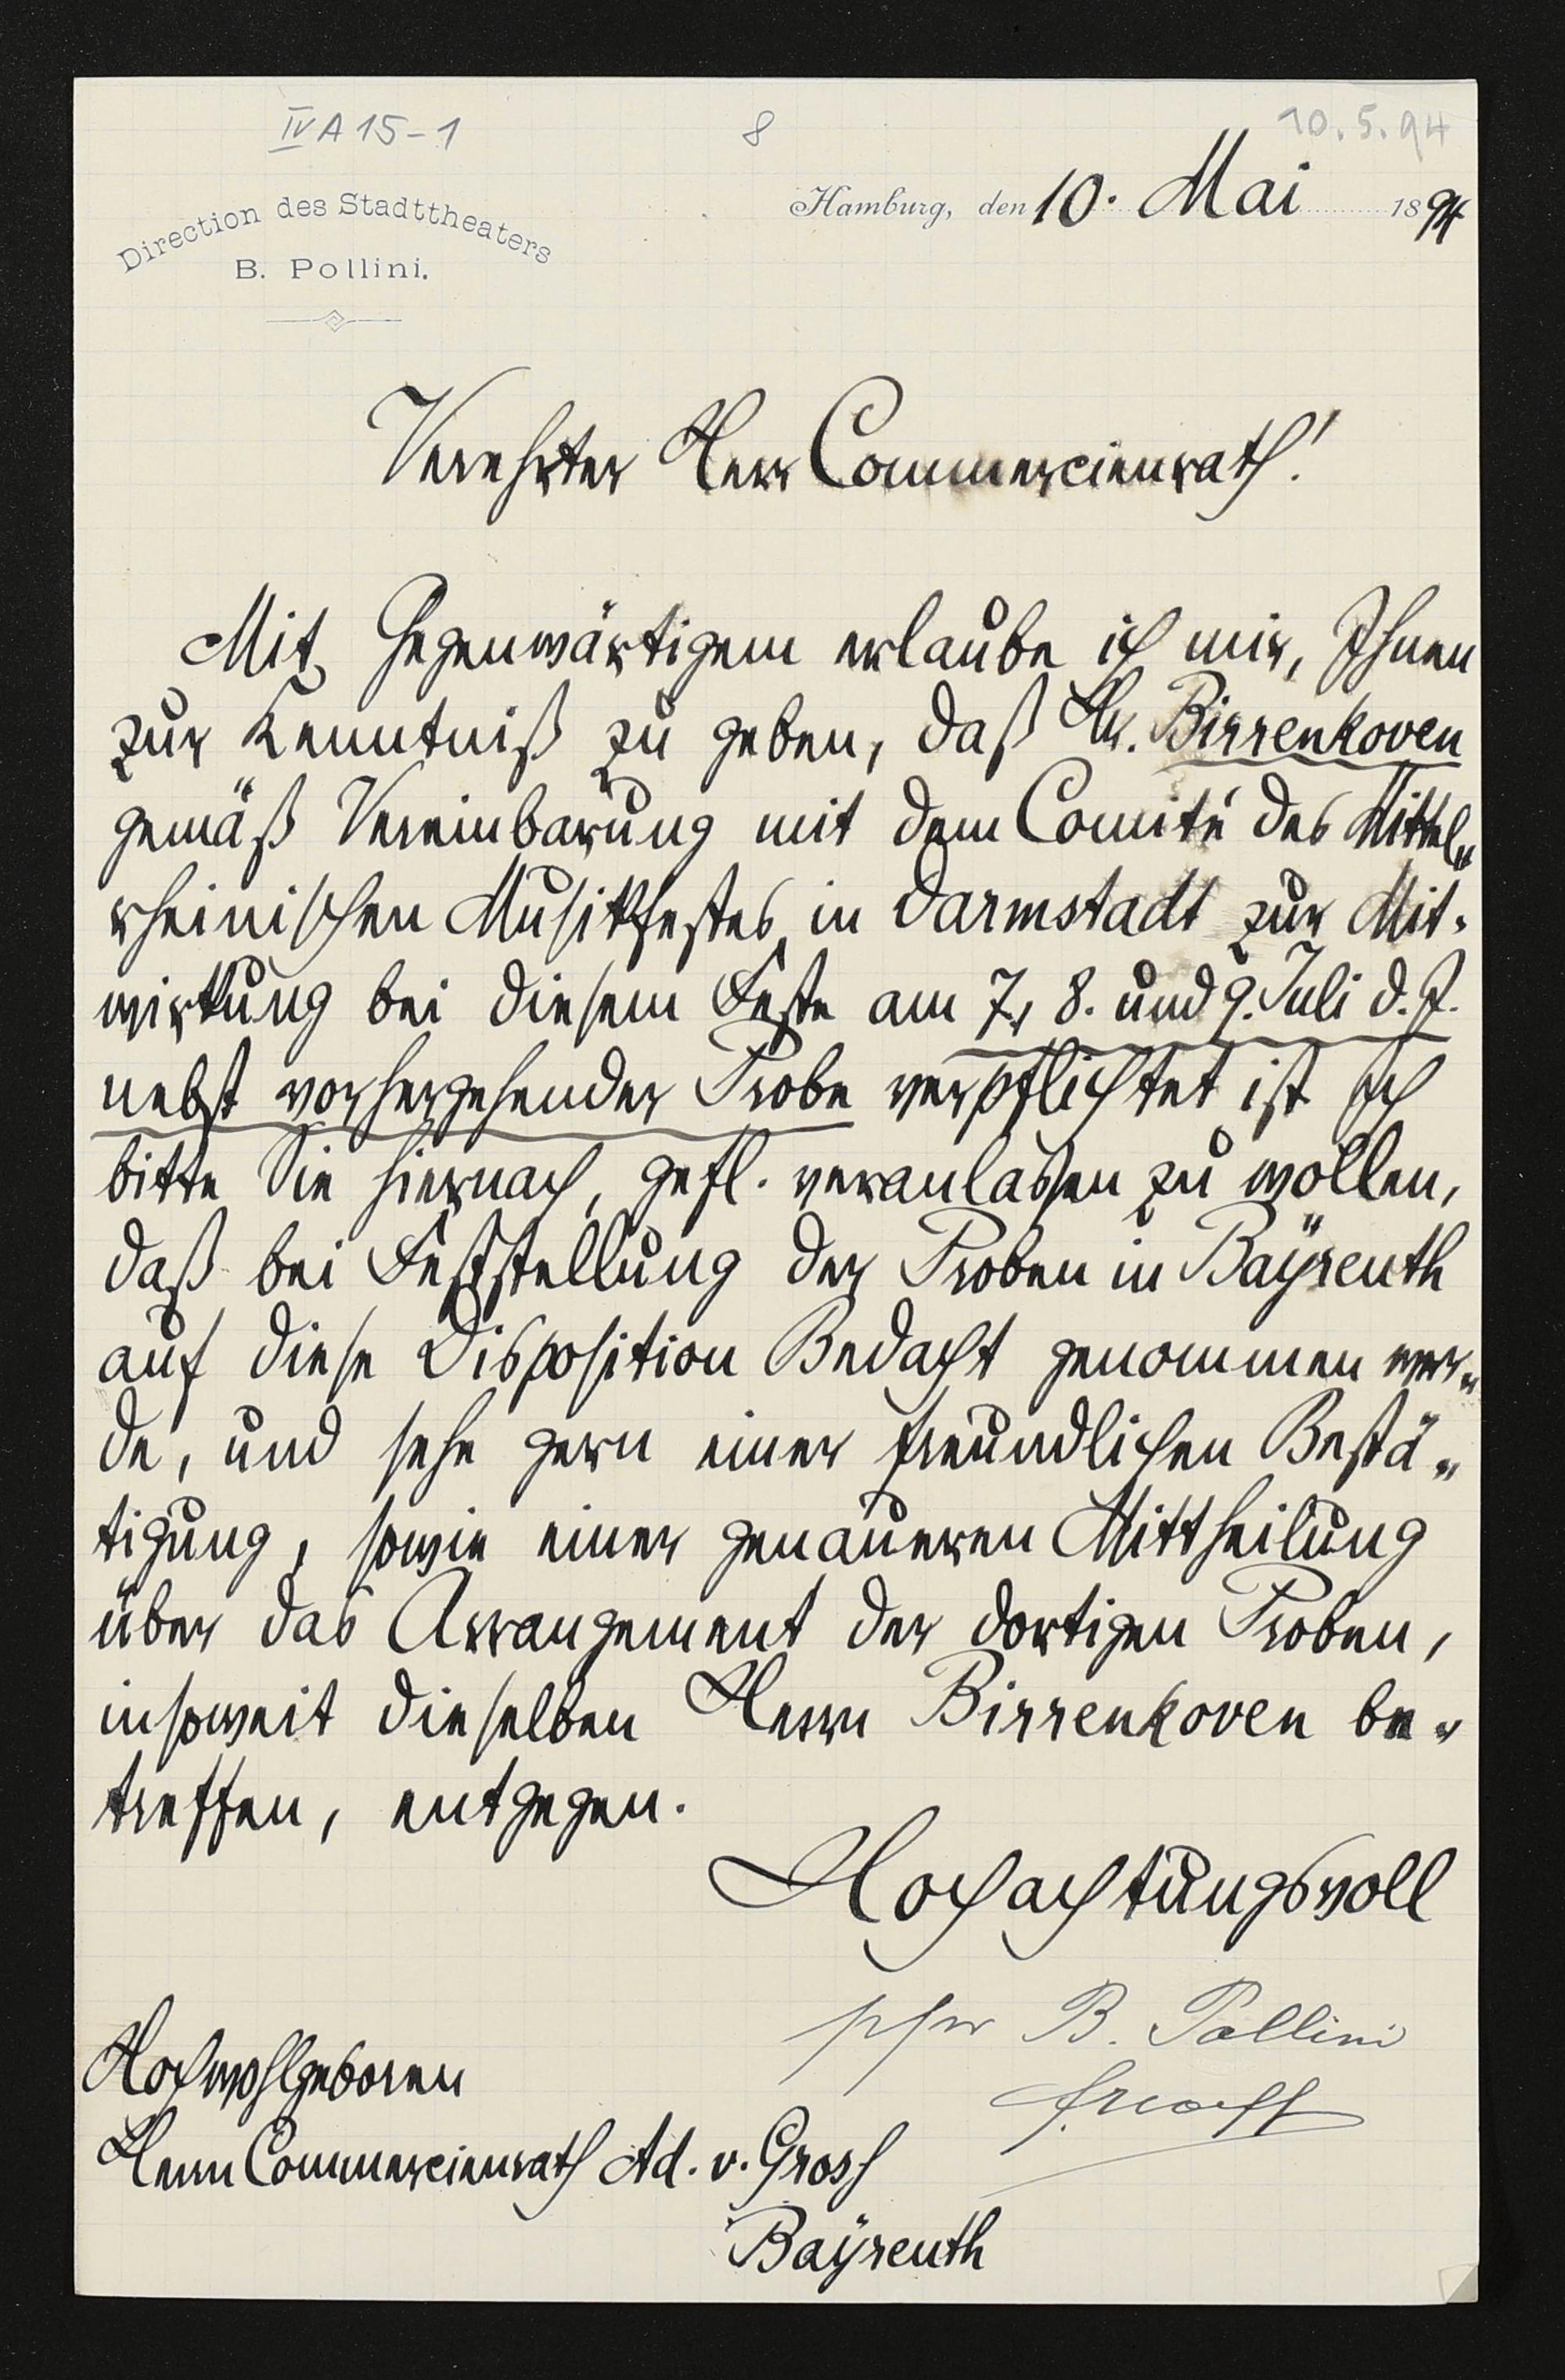 IV A 15-1
8
10.5.94
Direction des Stadttheaters
B. Pollini.
Hamburg, den 10. Mai 1894
Verehrter Herr Commercienrath!
Mit Gegenwärtigem erlaube ich mir, Ihnen
zur Kenntniß zu geben, daß Hr. Birrenkoven
gemäß Vereinbarung mit dem Comité des Mittel„
rheinischen Musikfestes in Darmstadt zur Mit-
wirkung bei diesem Feste am 7., 8. und 9. Juli d. J.
nebst vorhergehender Probe verpflichtet ist Ich
bitte Sie hiernach, gefl. veranlassen zu wollen,
daß bei Feststellung der Proben in Baÿreuth
auf diese Disposition Bedacht genommen wer„
de, und sehe gern einer freundlichen Bestä„
tigung, sowie einer genaueren Mittheilung
über das Arrangement der dortigen Proben,
insoweit dieselben Herrn Birrenkoven be„
treffen, entgegen.
Hochachtungsvoll
B. Pollini
Hochwohlgeboren
Herrn Commercienrath Ad. v. Gross
Baÿreuth